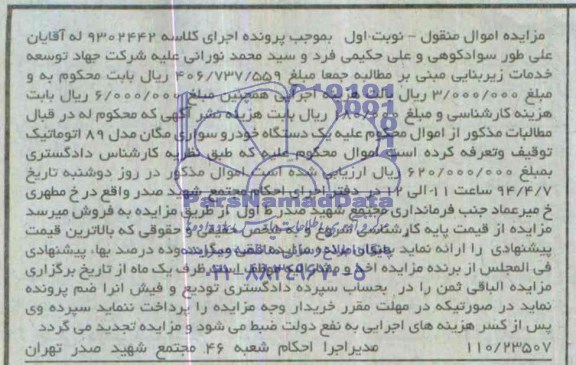 مزایده اموال منقول - نوبت اول بموجب پرونده اجرای کلاسه ۹۳۰۲۴۴۲ له آقایان
علی طور سوادکوهی و علی حکیمی فرد و سید محمد نورانی علیه شرکت جهاد توسعه
خدمات زیربنایی مبنی بر مطالبه جمعا مبلغ ۴۰۶/۷۳۷/۵۵۹ ریال بابت محکوم به و
مبلغ ۳/۰۰۰/۰۰۰ ریال هزینه اجرایی همچنین مبلغ ۶/۰۰۰/۰۰۰ ریال بابت
هزینه کارشناسی و مبلغ ریال بابت هزینه نشر آگهی که محکوم له در قبال
مطالبات مذکور از اموال محکوم علیه یک دستگاه خودرو سواری مگان مدل ۸۹ اتوماتیک
توقیف وتعرفه کرده است اموال محکوم علیه که طبق نظریه کارشناس دادگستری
بمبلغ ۶۲۰/۰۰۰/۰۰۰ ریال ارزیابی شده است اموال مذکور در روز دوشنبه تاریخ
۹۴/۴/۷ ساعت ۱۱ الی ۱۲ در دفتر اجرای احکام مجتمع شهید صدر واقع در خ مطهری
خ میرعماد جنب فرمانداری مجتمع شهید صدر ط اول از طریق مزایده به فروش میرسد
مزایده از قیمت پایه کارشناسی شروع و به شخص حقیقی و حقوقی که بالاترین قیمت
پیشنهادی را ارائه نماید ده درصد بها، پیشنهادی
فی المجلس از برنده مزایده اخذ و ظرف یک ماه از تاریخ برگزاری
مزایده الباقی ثمن را در بحساب سپرده دادگستری تودیع و فیش آنرا ضم پرونده
نماید در صورتیکه در مهلت مقرر خریدار وجه مزایده را پرداخت ننماید سپرده وی
پس از کسر هزینه های اجرایی به نفع دولت ضبط می شود و مزایده تجدید می گردد
۱۱۰/۲۳۵۰۷ مدیراجرا احکام شعبه ۴۶ مجتمع شهید صدر تهران
ParsNamadData
۰۲۱-۸۸۳۴۹۶۷۰-۵